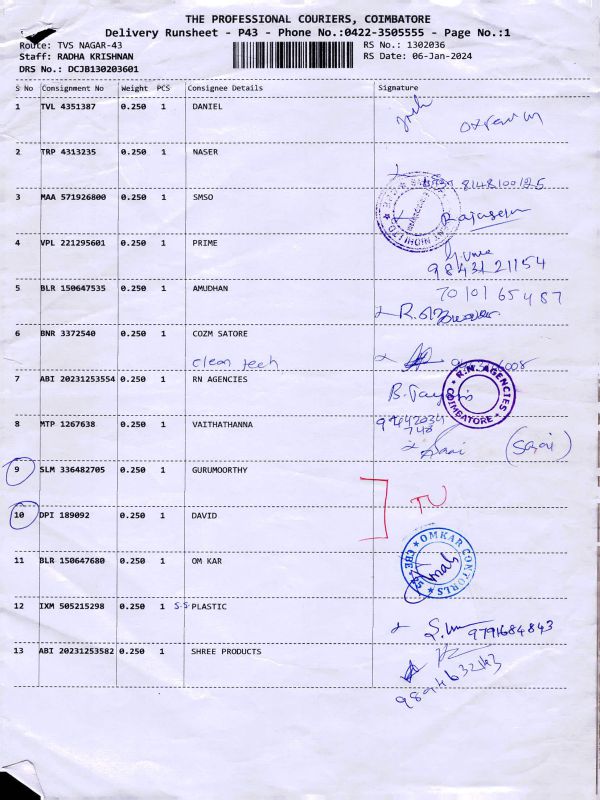 THE PROFESSIONAL COURIERS, COIMBATORE
Delivery Runsheet - P43 - Phone No.:0422-3505555 - Page No.:1
Route: TVS NAGAR-43 RS No.: 1302036
Staff: RADHA KRISHNAN RS Date: 06-Jan-2024
DRS No.: DCJB130203601
S No Consignment No Weight PCS Consignee Details Signature
1 TVL 4351387 0.250 1 DANIEL
2 TRP 4313235 0.250 1 NASER
8148100125
3 MAA 571926800 0.250 1 SMSO
Rajasekar
4 VPL 221295601 0.250 1 PRIME
9843121154
5 BLR 150647535 0.250 1 AMUDHAN 7010165487
6 BNR 3372540 0.250 1 COZM SATORE
clean tech
7 ABI 20231253554 0.250 1 RN AGENCIES
R.N. AGENCIES COIMBATORE
8 MTP 1267638 0.250 1 VAITHATHANNA
9 SLM 336482705 0.250 1 GURUMOORTHY
10 DPI 189092 0.250 1 DAVID
11 BLR 150647680 0.250 1 OM KAR
OMKAR CONTORLS
12 IXM 505215298 0.250 1 S.S PLASTIC
9791684843
13 ABI 20231253582 0.250 1 SHREE PRODUCTS
9894632343